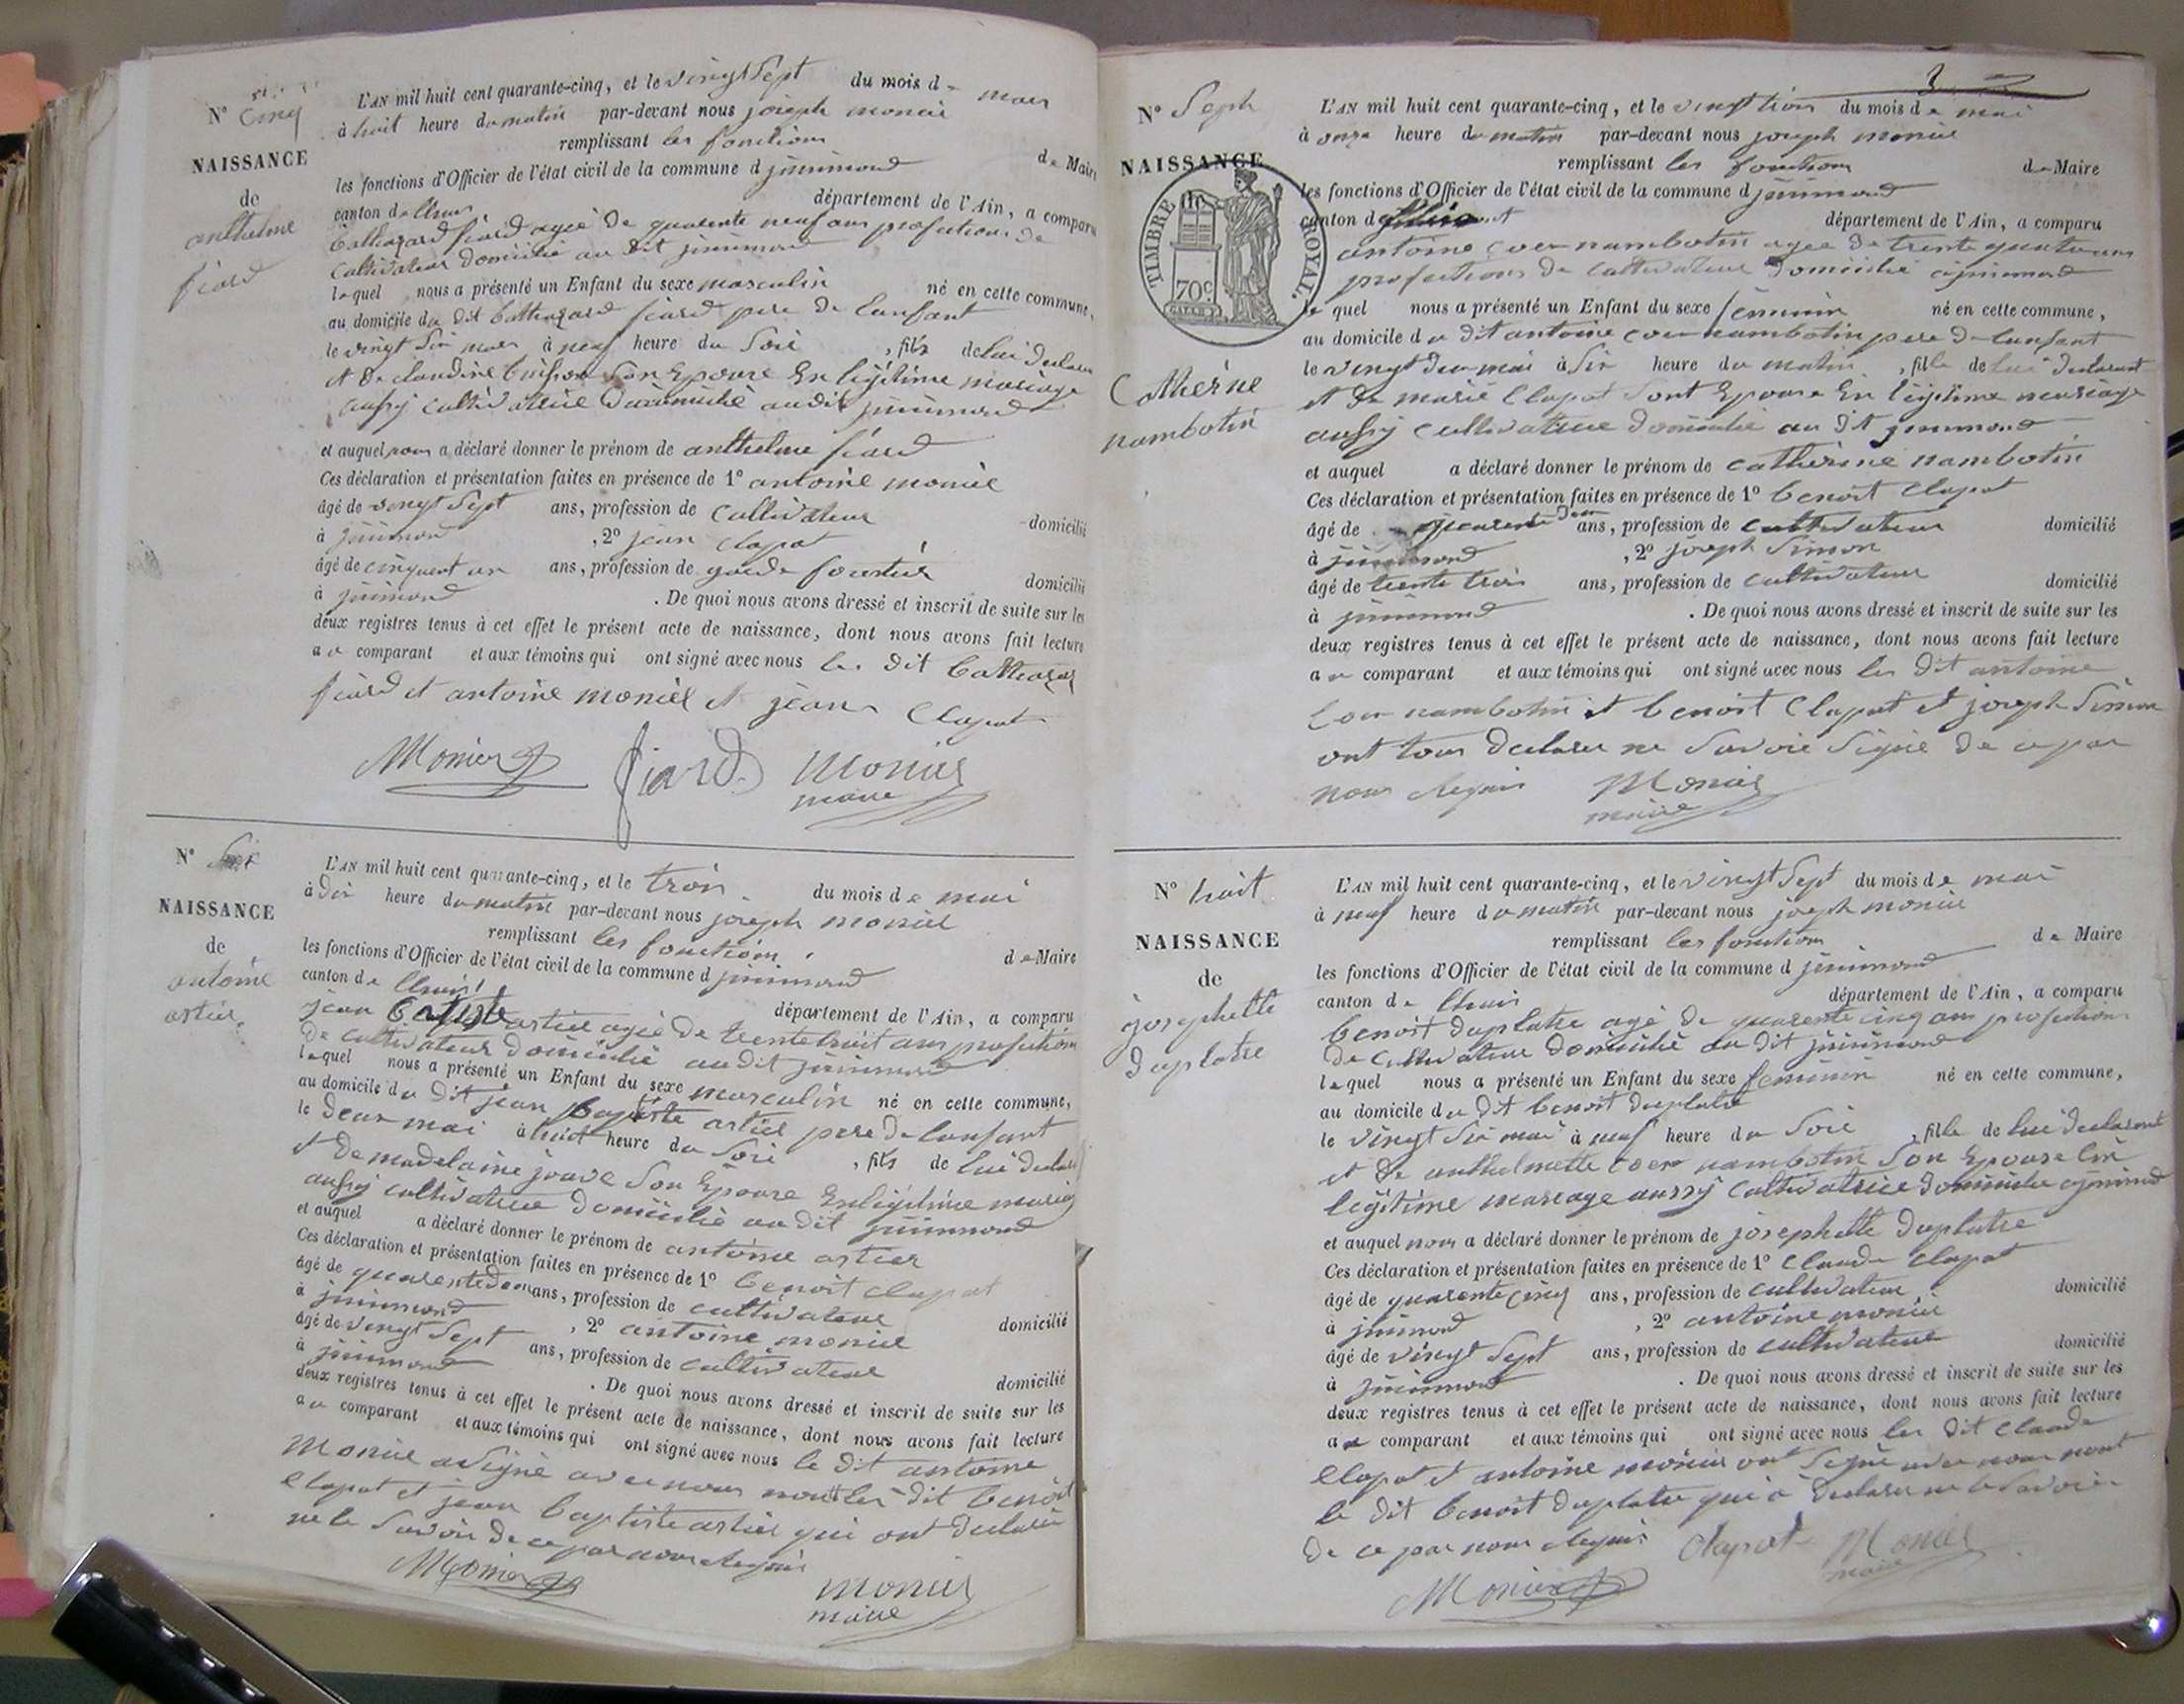 N° Cinq
NAISSANCE
de
anthelme
fiard
L'AN mil huit cent quarante-cinq, et le vingt Sept du mois d mars
à huit heure du matin par-devant nous joseph monier
remplissant les fonctions de Maire
les fonctions d'Officier de l'état civil de la commune d jujurieux
canton de lhuis département de l'Ain, a comparu
balthazard fiard agée de quarente neuf ans profections de
Cultivateur domicilié au dit
lequel nous a présenté un Enfant du sexe masculin né en cette commune,
au domicile du dit balthazard fiard pere de lenfant
le vingt Six mars à neuf heure du Soir , fils de lui declarant
et de claudine buisson Son Epouse En légitime mariage
aussy cultivatrice domicilié audit
et auquel nous a déclaré donner le prénom de anthelme fiard
Ces déclaration et présentation faites en présence de 1° antoine monier
âgé de vingt Sept ans, profession de Cultivateur domicilié
à , 2° jean clapat
âgé de cinquent un ans, profession de garde forestier domicilié
à . De quoi nous avons dressé et inscrit de suite sur les
deux registres tenus à cet effet le présent acte de naissance, dont nous avons fait lecture
au comparant et aux témoins qui ont signé avec nous les dit balthazar
fiard et antoine monier et jean Clapat
Monier fiard monier
maire
N° Six
NAISSANCE
de
antoine
artier
L'AN mil huit cent quarante-cinq, et le trois du mois de mai
à dix heure du matin par-devant nous joseph monier
remplissant les fonctions de Maire
les fonctions d'Officier de l'état civil de la commune d
canton de lhuis département de l'Ain, a comparu
jean batiste artier agée de trente huit ans profections
de cultivateur domicilié audit
lequel nous a présenté un Enfant du sexe masculin né en cette commune,
au domicile du dit jean baptiste artier pere de lenfant
le deux mai à huit heure du Soir , fils de lui declarant
et de madelaine jouve Son Epouse En légitime mariage
aussy cultivatrice domicilié au dit
et auquel a déclaré donner le prénom de antoine artier
Ces déclaration et présentation faites en présence de 1° benoit clapat
âgé de quarente deux ans, profession de cultivateur domicilié
à , 2° antoine monier
âgé de vingt Sept ans, profession de cultivateur domicilié
à . De quoi nous avons dressé et inscrit de suite sur les
deux registres tenus à cet effet le présent acte de naissance, dont nous avons fait lecture
au comparant et aux témoins qui ont signé avec nous le dit antoine
monier a Signé avec nous les dit benoit
Clapat et jean baptiste artier qui ont declarer
ne le Savoir de ce par nous requis
Monier monier
maire
3
N° Seph
NAISSANCE
de
TIMBRE ROYAL.
70c
Catherine
nambotin
L'AN mil huit cent quarante-cinq, et le vingt trois du mois de mai
à onze heure du matin par-devant nous joseph monier
remplissant les fonctions de Maire
les fonctions d'Officier de l'état civil de la commune d
canton d département de l'Ain, a comparu
antoine coer nambotin agée de trente quatre ans
profections de cultivateur domicilié a
le quel nous a présenté un Enfant du sexe féminin né en cette commune,
au domicile du dit antoine coer nambotin pere de lenfant
le vingt deux mai à Six heure du matin , fille de lui declarant
et de marie Clapat Sont Epouse En légitime mariage
aussy cultivatrice domicilié au dit
et auquel a déclaré donner le prénom de catherine nambotin
Ces déclaration et présentation faites en présence de 1° benoit Clapat
âgé de quarente deux ans, profession de cultivateur domicilié
à , 2° joseph Simon
âgé de trente trois ans, profession de cultivateur domicilié
à . De quoi nous avons dressé et inscrit de suite sur les
deux registres tenus à cet effet le présent acte de naissance, dont nous avons fait lecture
au comparant et aux témoins qui ont signé avec nous les dit antoine
Coer nambotin et benoit Clapat et joseph Simon
ont tous declarer ne Savoir Signé de ce par
nous requis Monier
maire
N° huit
NAISSANCE
de
josephette
duplatre
L'AN mil huit cent quarante-cinq, et le vingt Sept du mois de mai
à neuf heure du matin par-devant nous joseph monier
remplissant les fonctions de Maire
les fonctions d'Officier de l'état civil de la commune d
canton de lhuis département de l'Ain, a comparu
benoit duplatre agé de quarente cinq ans profections
de cultivateur domicilié au dit
lequel nous a présenté un Enfant du sexe feminin né en cette commune,
au domicile du dit benoit duplatre
le vingt Six mai à neuf heure du Soir , fille de lui declarant
et de anthelmette coer nambotin Son Epouse En
légitime mariage aussy cultivatrice domicilié a
et auquel nous a déclaré donner le prénom de josephette duplatre
Ces déclaration et présentation faites en présence de 1° Claude Clapat
âgé de quarente cinq ans, profession de cultivateur domicilié
à , 2° antoine monier
âgé de vingt Sept ans, profession de cultivateur domicilié
à . De quoi nous avons dressé et inscrit de suite sur les
deux registres tenus à cet effet le présent acte de naissance, dont nous avons fait lecture
au comparant et aux témoins qui ont signé avec nous les dit Claude
Clapat et antoine monier ont Signé avec nous nont
le dit benoit duplatre qui a declarer ne le Savoir
de ce par nous requis Clapat Monier
maire
Monier